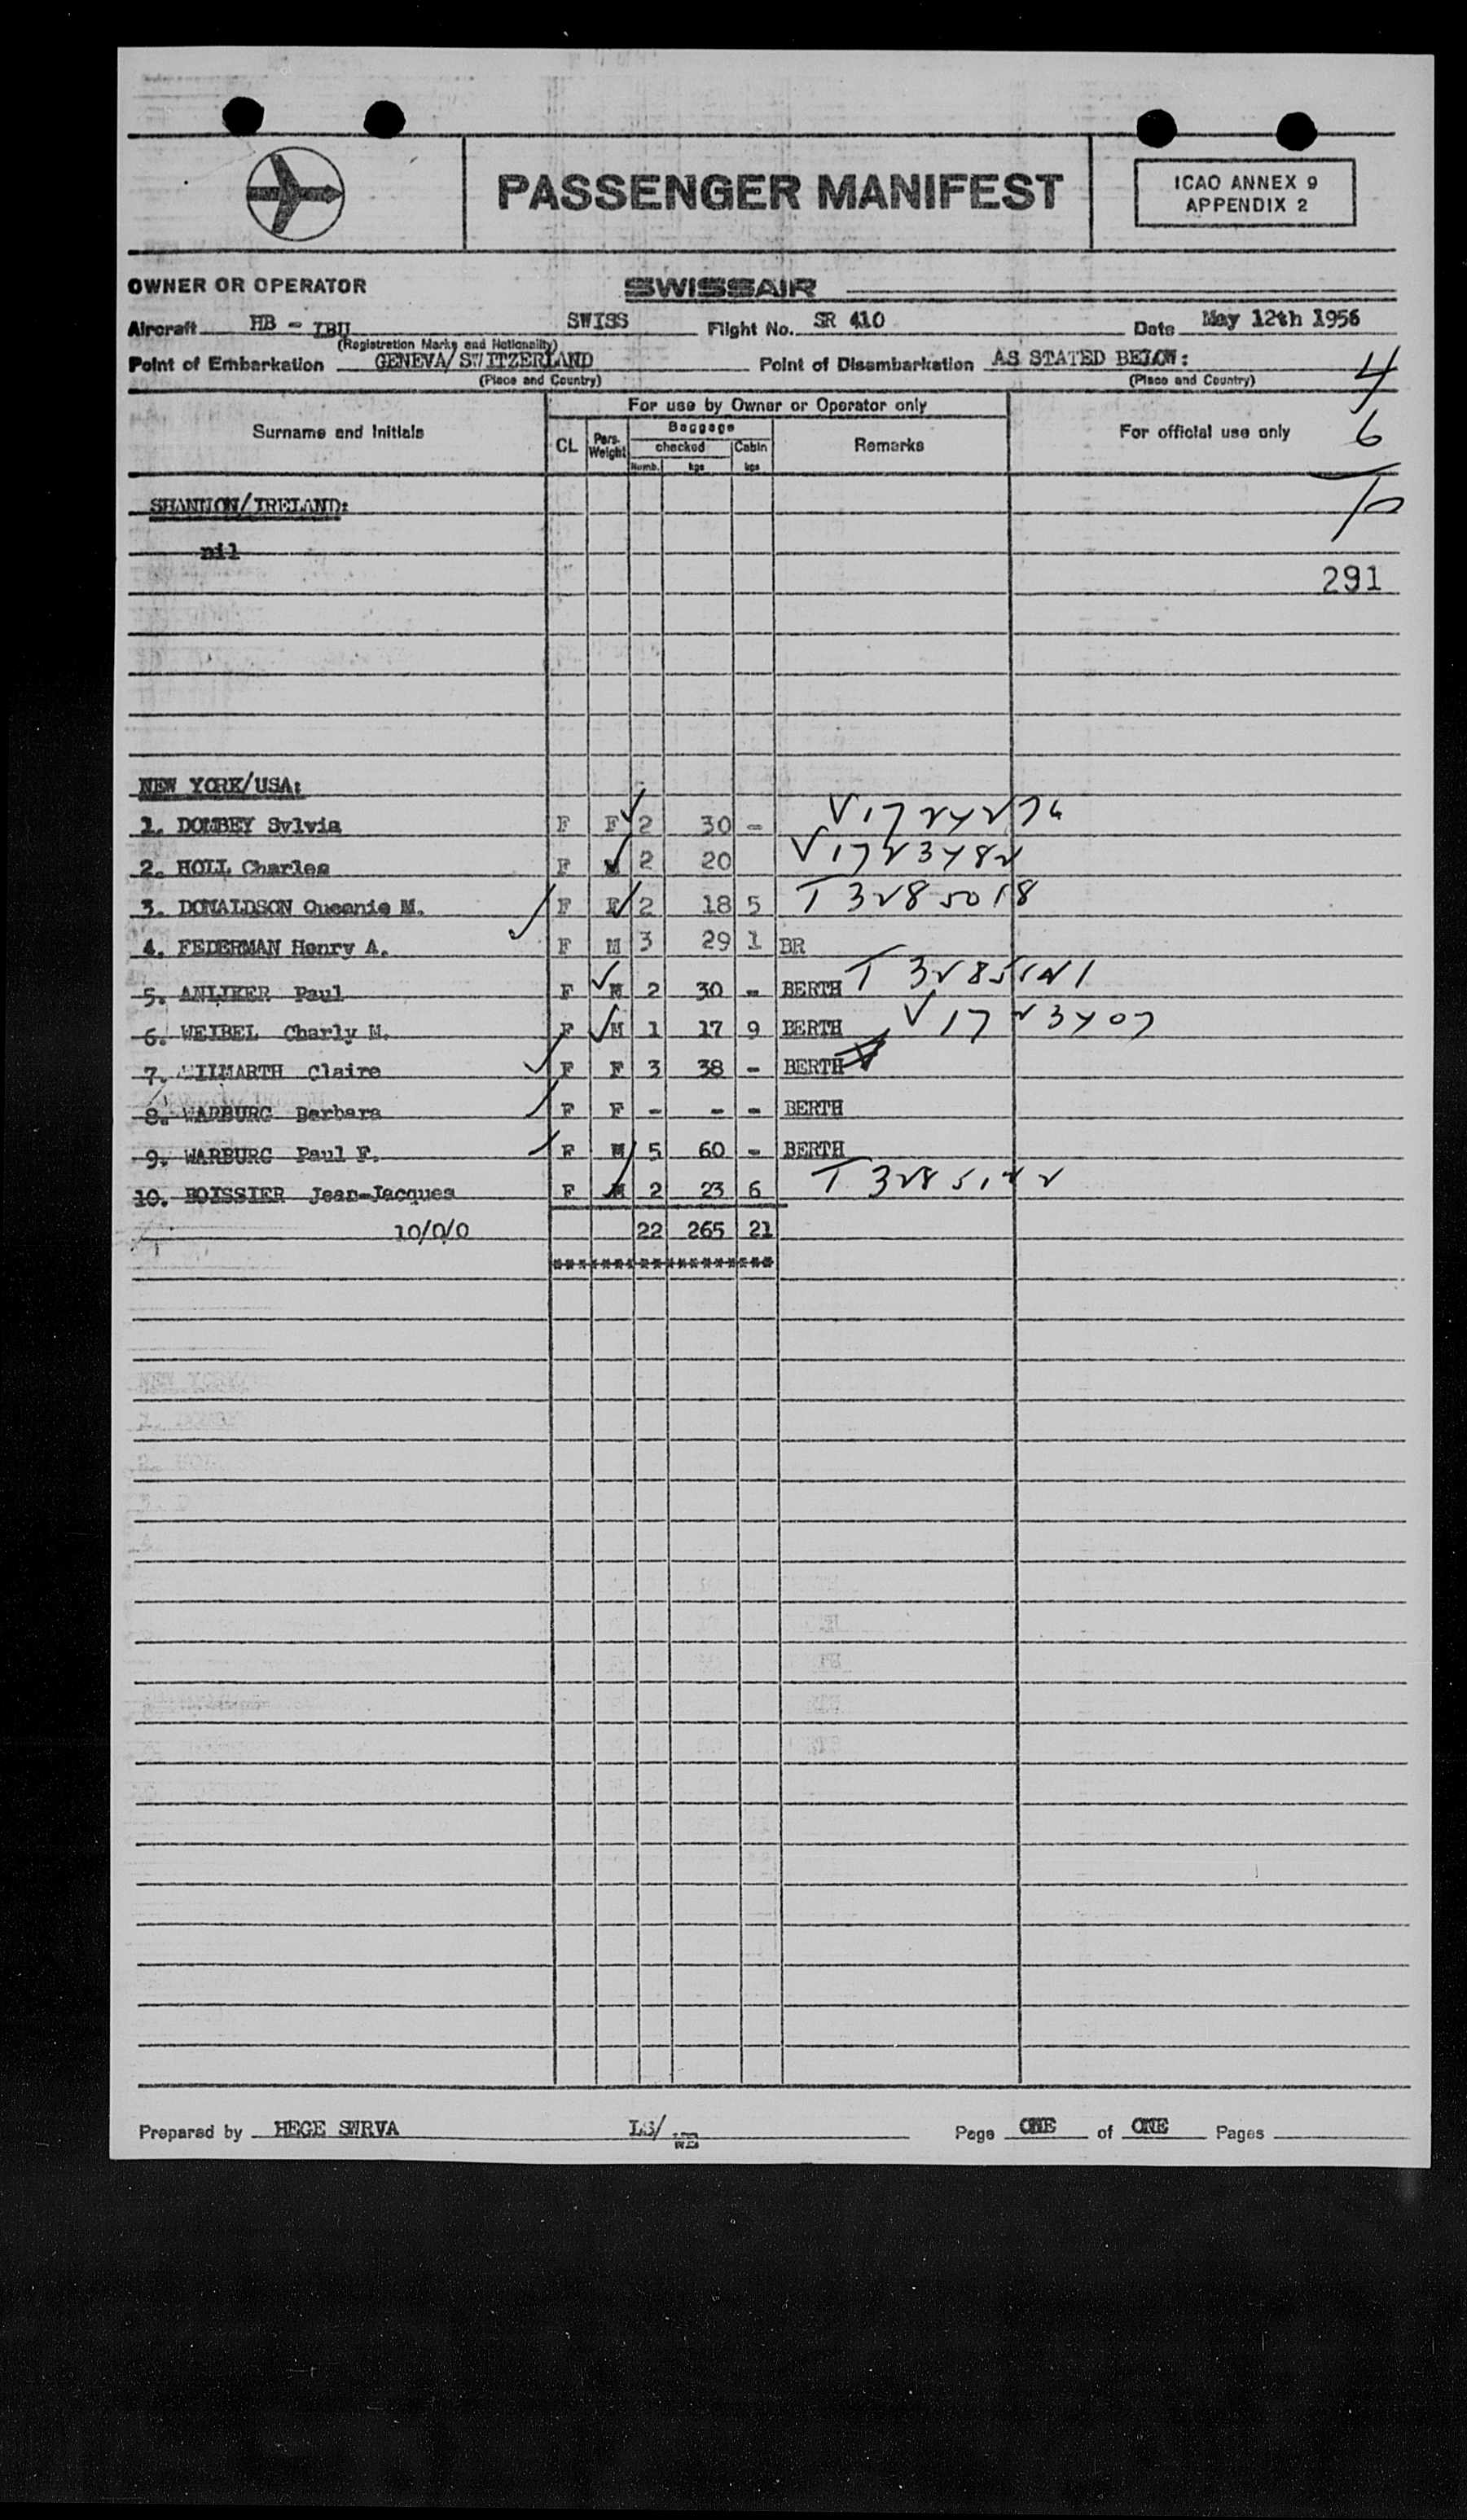 PASSENGER MANIFEST
ICAO ANNEX 9
APPENDIX 2
OWNER OR OPERATOR SWISSAIR
Aircraft HB - IBU SWISS Flight No. SR 410 Date May 12th 1956
(Registration Marks and Nationality)
Point of Embarkation GENEVA/SWITZERLAND Point of Disembarkation AS STATED BELOW:
(Place and Country) (Place and Country)
4
For use by Owner or Operator only
Surname and Initials CL Pers. Weight Baggage checked Numb. kgs Cabin kgs Remarks For official use only
6
SHANNON/IRELAND:
10
nil
291
NEW YORK/USA:
1. DOMBEY Sylvia F F 2 30 - V1724276
2. HOLL Charles F 2 20 V1723482
3. DONALDSON Queenie M. F F 2 18 5 T3285018
4. FEDERMAN Henry A. F M 3 29 1 BR
5. ANLIKER Paul F M 2 30 - BERTH T
6. WEIBEL Charly M. F M 1 17 9 BERTH V1723407
7. WILMARTH Claire F F 3 38 - BERTH
8. WARBURG Barbara F F - - - BERTH
9. WARBURG Paul F. F M 5 60 - BERTH
10. BOISSIER Jean-Jacques F M 2 23 6 T
10/0/0 22 265 21
Prepared by HEGE SWRVA LS/ Page ONE of ONE Pages